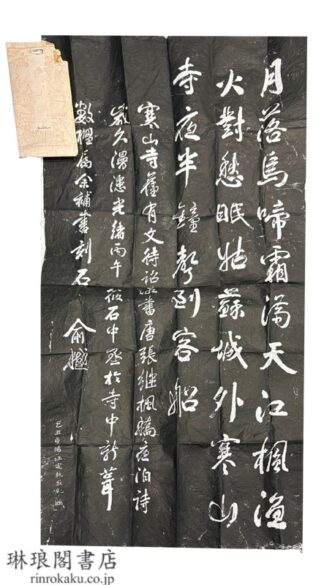 月落烏啼霜满天江楓漁
火對愁眠姑蘇城外寒山
寺夜半鐘聲到客船
寒山寺舊有文待詔所書唐張継楓橋夜泊詩
歲久漫漶光緒丙午筱石中丞於寺中新葺
數楹屬余補書刻石 俞樾
琳琅閣書店
rinrokaku.co.jp